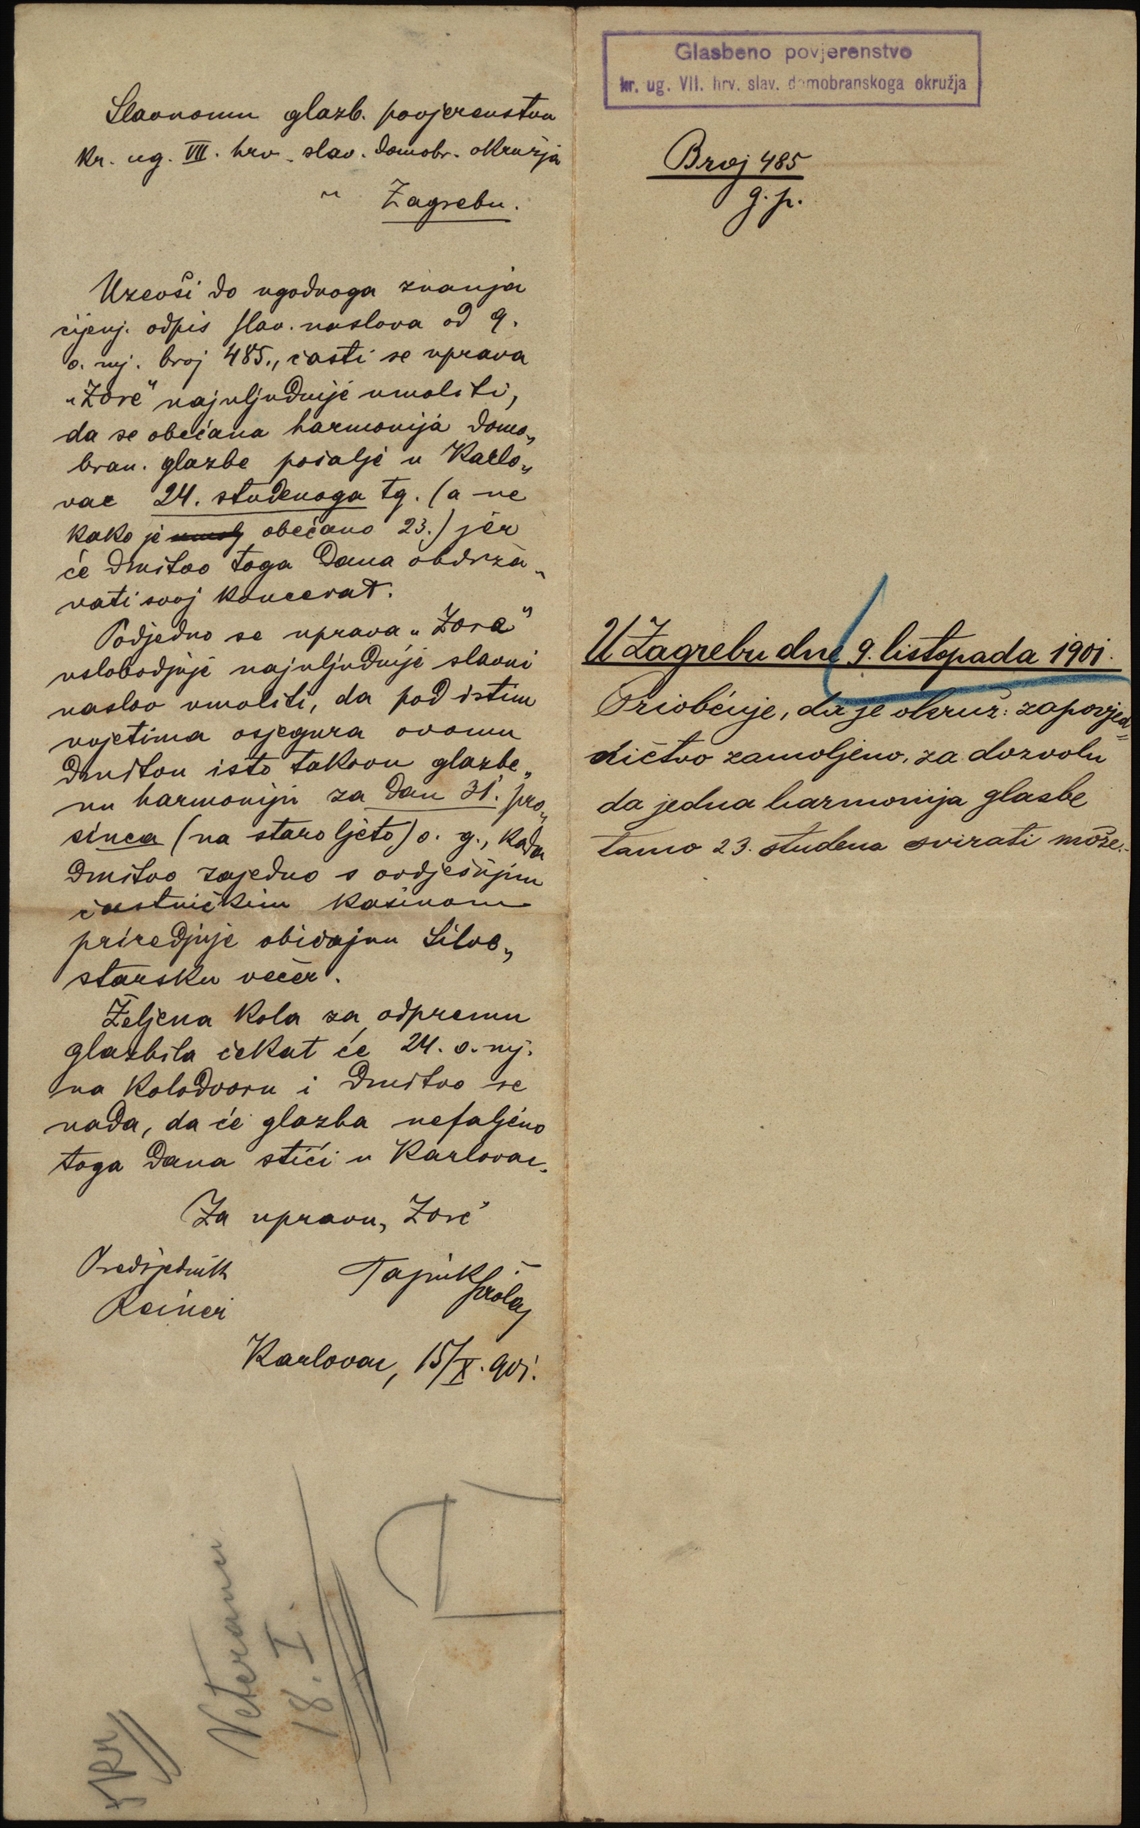 Slavnomu glazb. povjerenstvu
kr. ug. VII. hrv. slav. domobr. okružja
u Zagrebu.
Uzevši do ugodnoga znanja
cijenj. odpis slav. naslova od 9.
o. mj. broj 485., časti se uprava
„Zore" najuljudnije umoliti,
da se obećana harmonija domo„
bran. glazbe pošalje u Karlo„
vac 24. studenoga tg. (a ne
kako je obećano 23.) jer
će društvo toga dana obdrža„
vati svoj koncerat.
Podjedno se uprava „Zore"
uslobodjuje najuljudnije slavni
naslov umoliti, da pod istim
uvjetima osjegura ovomu
društvu isto takovu glazbe„
nu harmoniju za dan 31. pro„
sinca (na staro ljeto) o. g., kada
društvo zajedno s ovdješnjim
častničkim kasinom
priredjuje običajnu Silve„
starsku večer.
Željena kola za odpremu
glazbila čekat će 24. o. mj.
na kolodvoru i društvo se
nada, da će glazba nefaljeno
toga dana stići u Karlovac.
Za upravu „Zore"
Predsjednik Tajnik
Reiner
Karlovac, 15/X. 901.
Veterani
18. I.
Glasbeno povjerenstvo
kr. ug. VII. hrv. slav. domobranskoga okružja
Broj 485
g. p.
U Zagrebu dne 9. listopada 1901.
Priobćuje, da je okruž: zapovjed=
ničtvo zamoljeno, za dozvolu
da jedna harmonija glasbe
tamo 23. studena svirati može.-